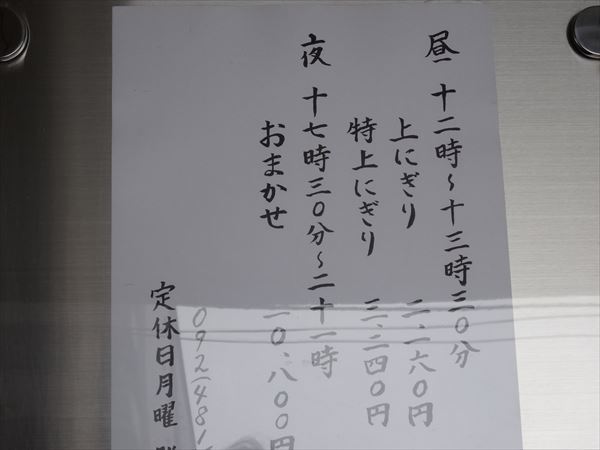 昼 十二時～十三時三〇分
上にぎり 二.一六〇円
特上にぎり 三.二四〇円
夜 十七時三〇分～二十一時
おまかせ 一〇.八〇〇円
092(481
定休日月曜